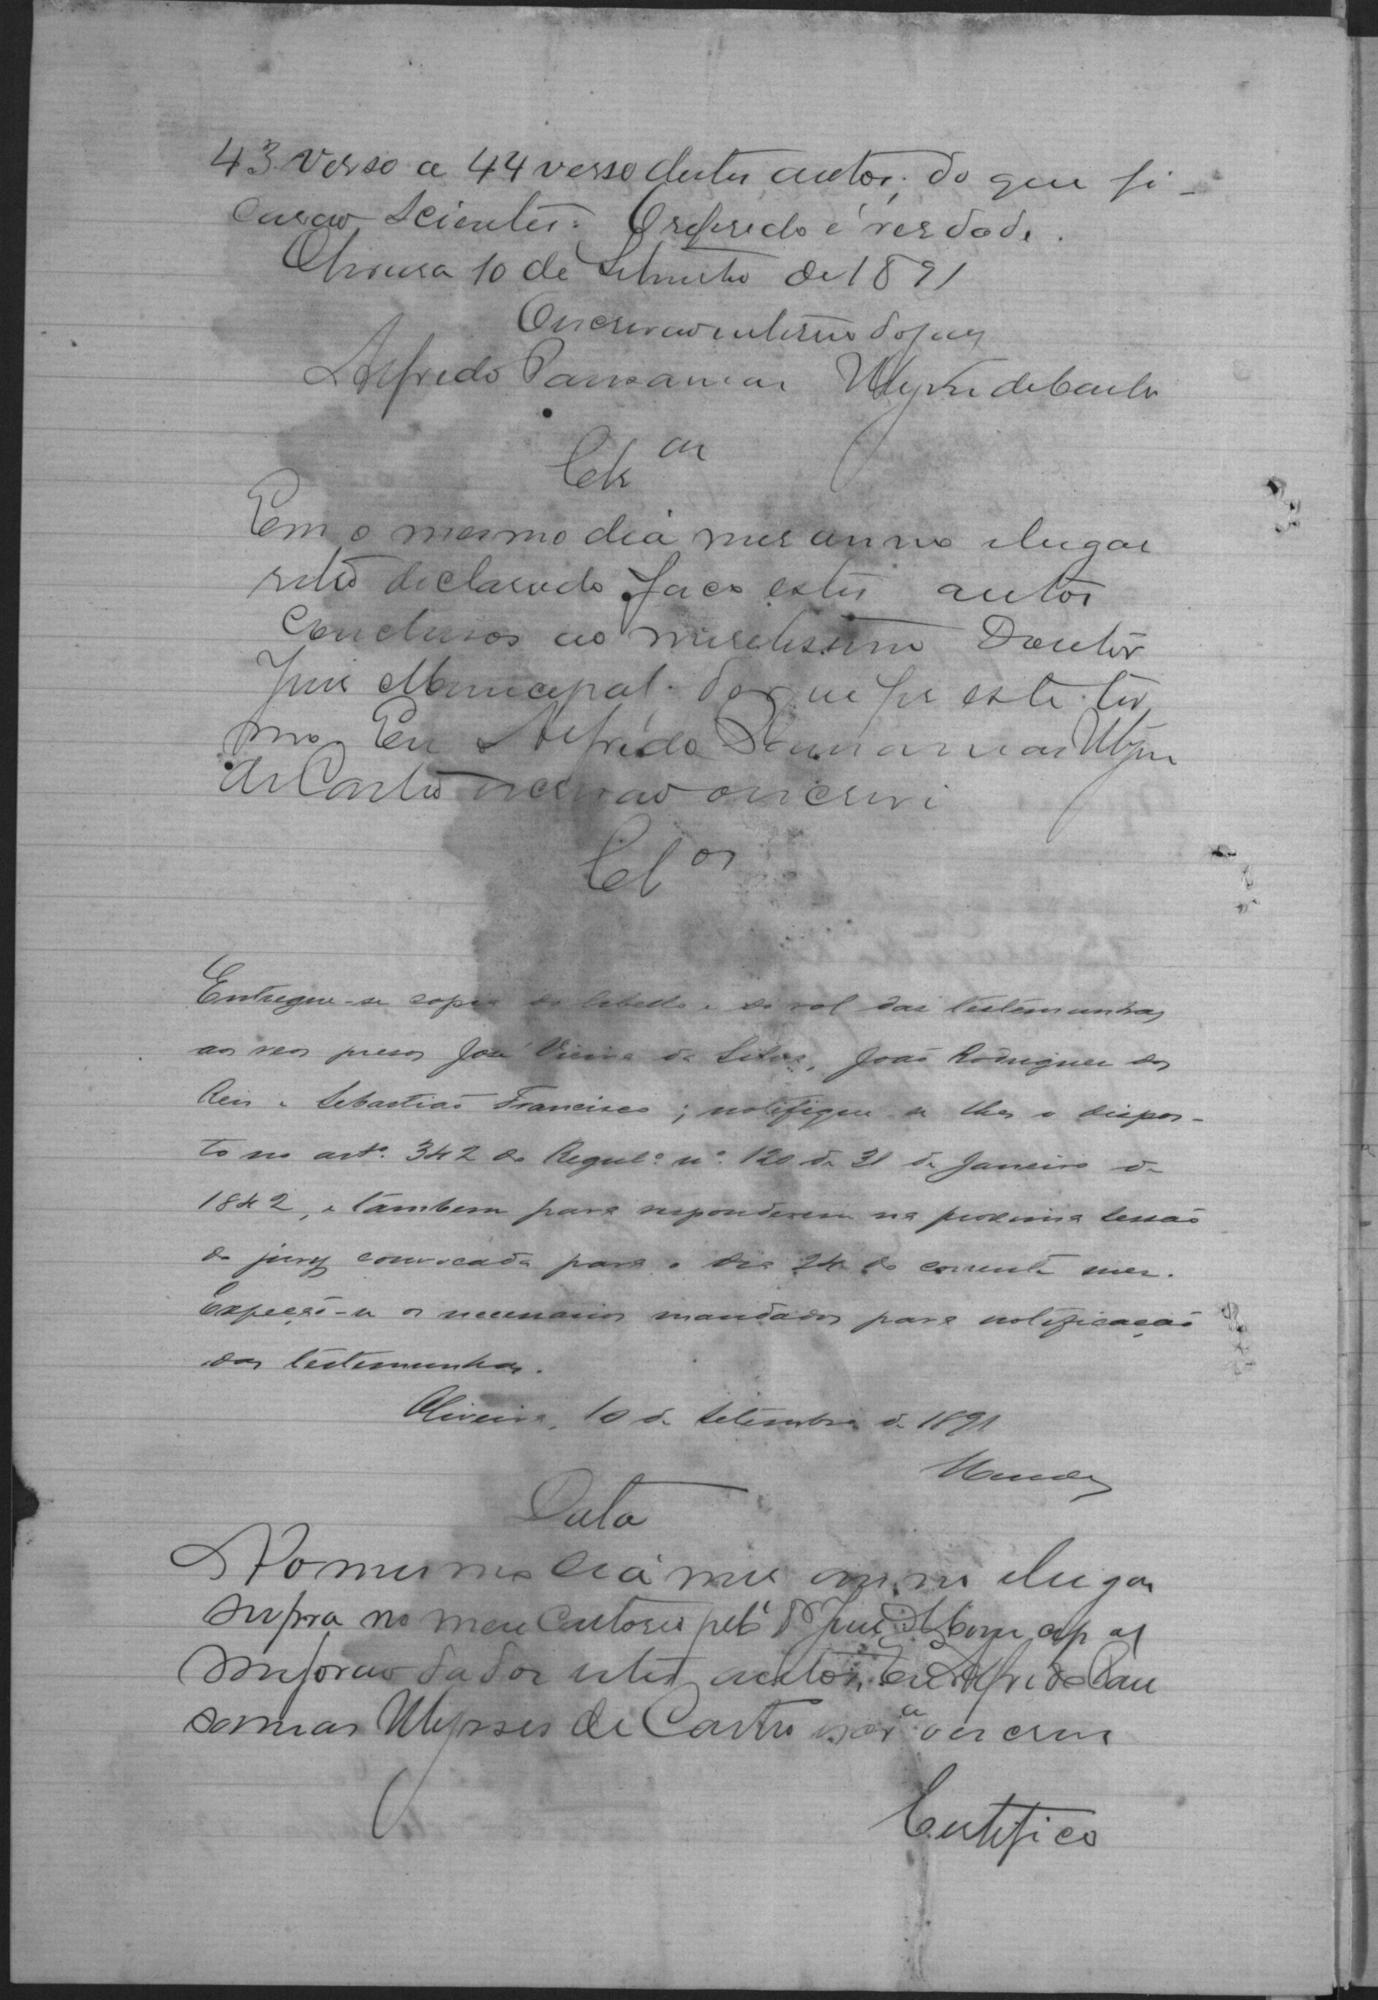 43 verso a 44 verso destes autos; do que fi-
carão scientes. O referido é verdade.
Oliveira 10 de Setembro de 1891
O escrivão interino do jury
Alfredo Pausanias Ulysses de Castro
Cls. os
Em o mesmo dia mes anno e lugar
retro declarado faço estes autos
conclusos ao meretissimo Doutor
Juis Municipal. do que fis este ter
mo. Eu Alfredo Pausanias Ulysses
de Castro escrivão o escrevi
Cl os
Entregue-se copia do libello e do rol das testemunhas
aos reos presos José Vieira da Silva, João Rodrigues dos
Reis e Sebastião Francisco; notifique se lhes o dispos-
to no artº. 342 do Regulº. nº. 120 de 31 de Janeiro de
1842, e tambem para responderem na proxima sessão
do jury convocada para o dia 24 do corrente mes.
Expeção-se os necessarios mandados para notificação
das testemunhas.
Oliveira, 10 de Setembro de 1891
Data
No mesmo dia mes anno e lugar
supra no meu Cartorio pelo Dr Juis Municipal
me forão dados estes autos. Eu Alfredo Pau
sanias Ulysses de Castro escr. o escrevi
Certifico